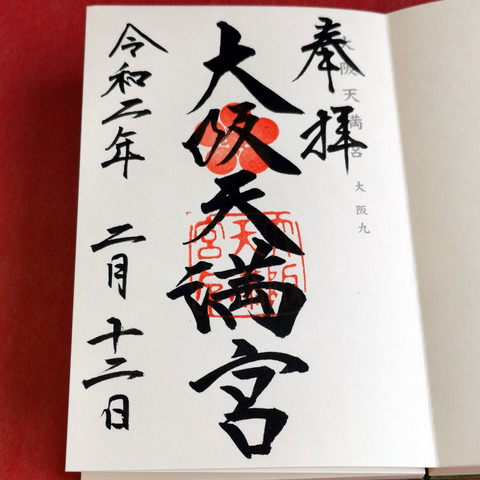 奉拝
大阪天満宮 大阪九
大阪天満宮
令和二年 二月 十二日